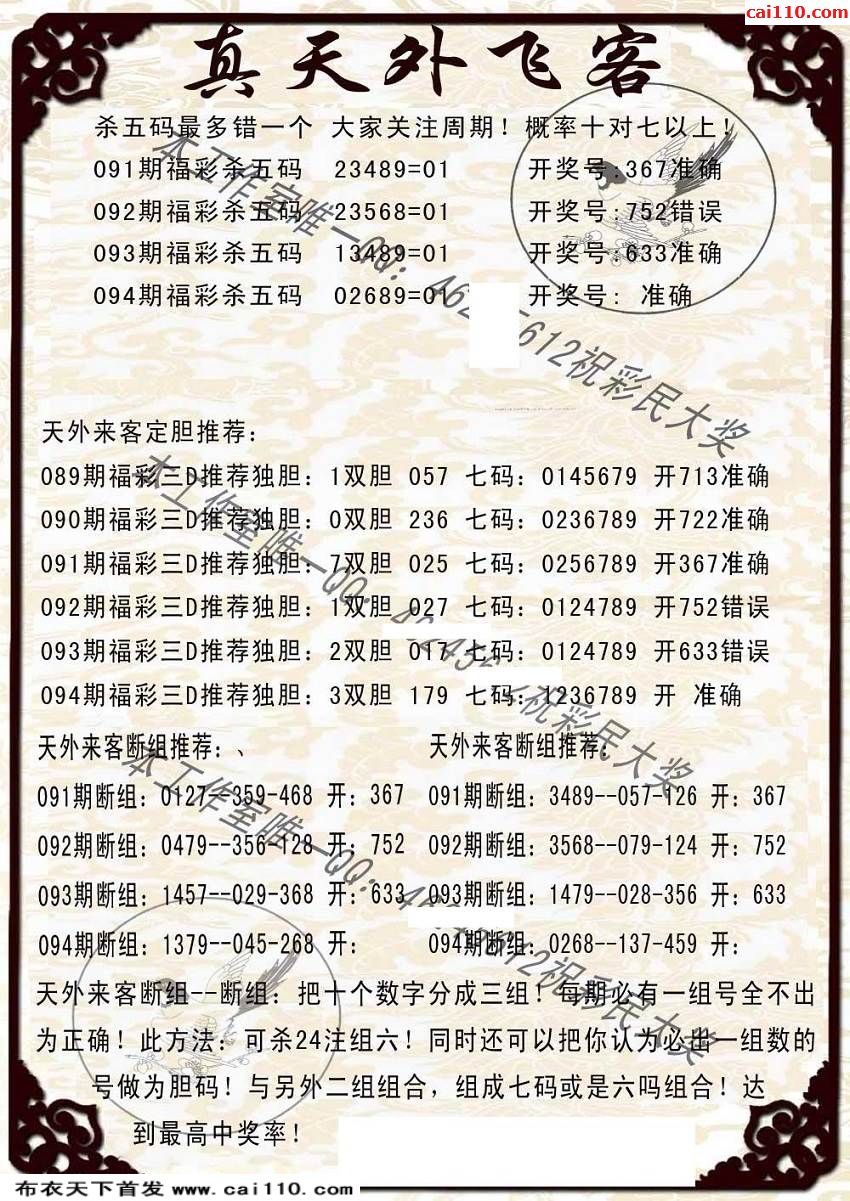 cai110.com
真天外飞客
杀五码最多错一个 大家关注周期！概率十对七以上！
091期福彩杀五码 23489=01 开奖号:367准确
092期福彩杀五码 23568=01 开奖号:752错误
093期福彩杀五码 13489=01 开奖号:633准确
094期福彩杀五码 02689=01 开奖号: 准确
天外来客定胆推荐:
089期福彩三D推荐独胆: 1双胆 057 七码: 0145679 开713准确
090期福彩三D推荐独胆: 0双胆 236 七码: 0236789 开722准确
091期福彩三D推荐独胆: 7双胆 025 七码: 0256789 开367准确
092期福彩三D推荐独胆: 1双胆 027 七码: 0124789 开752错误
093期福彩三D推荐独胆: 2双胆 017 七码: 0124789 开633错误
094期福彩三D推荐独胆: 3双胆 179 七码: 1236789 开 准确
天外来客断组推荐:、
091期断组: 0127--359-468 开: 367
092期断组: 0479--356-128 开: 752
093期断组: 1457--029-368 开: 633
094期断组: 1379--045-268 开:
天外来客断组推荐:
091期断组: 3489--057-126 开: 367
092期断组: 3568--079-124 开: 752
093期断组: 1479--028-356 开: 633
094期断组: 0268--137-459 开:
天外来客断组--断组: 把十个数字分成三组！每期必有一组号全不出
为正确！此方法: 可杀24注组六！同时还可以把你认为必出一组数的
号做为胆码！与另外二组组合，组成七码或是六吗组合！达
到最高中奖率！
本工作室唯一QQ: 612祝彩民大奖
本工作室唯一QQ: 祝彩民大奖
本工作室唯一QQ: 612祝彩民大奖
布衣天下首发 www.cai110.com